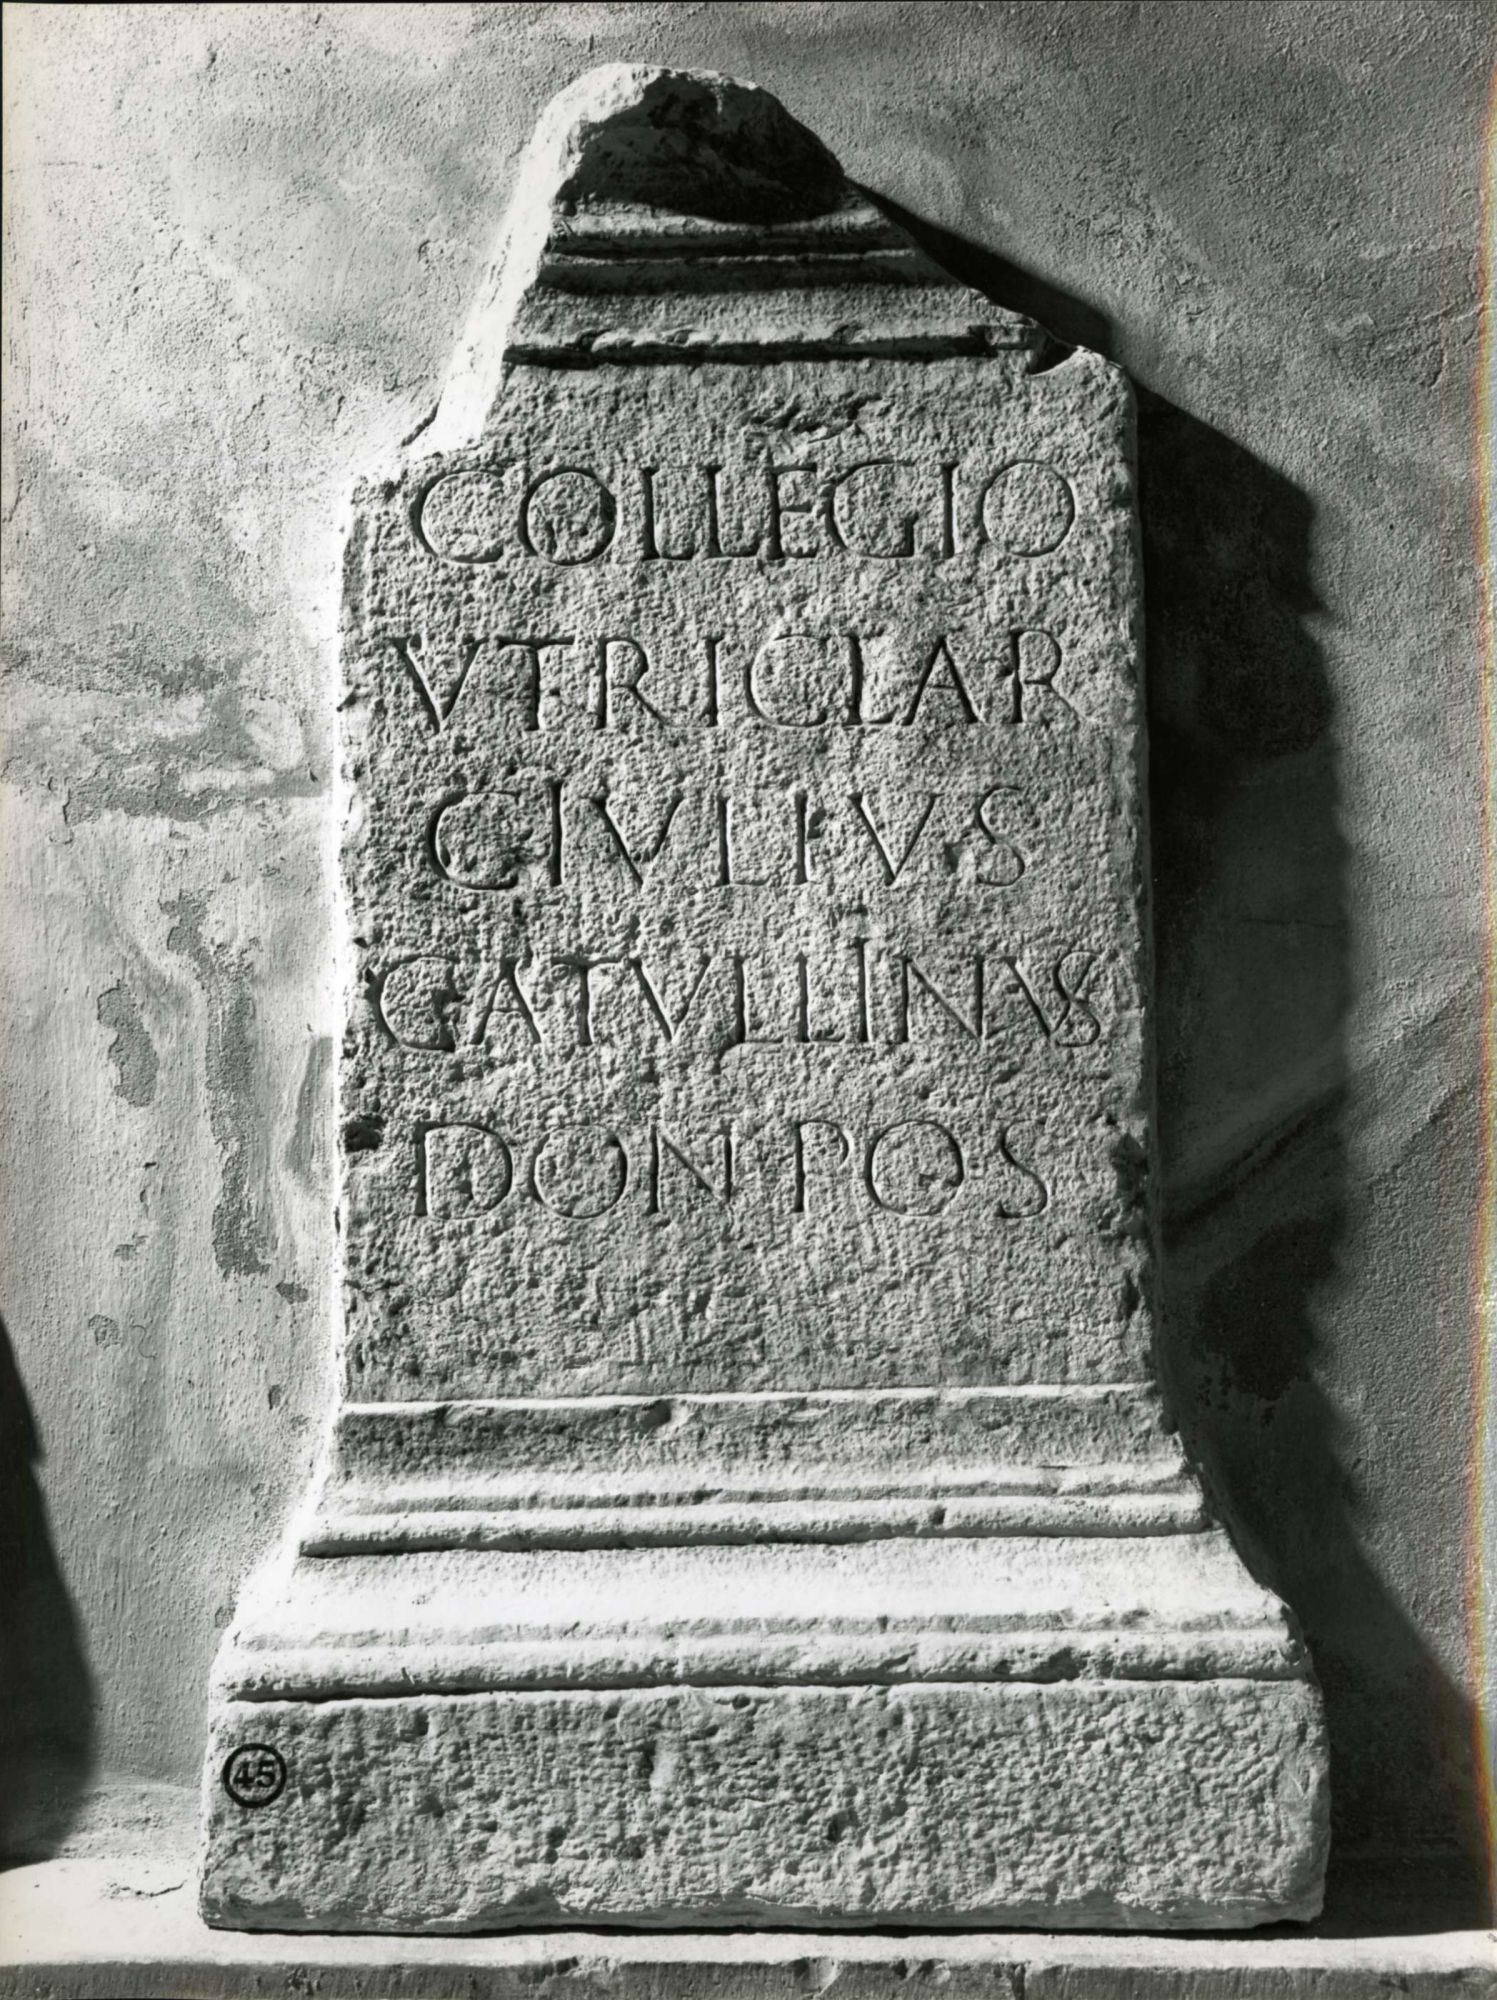 COLLEGIO
VTRICLAR
C IVLIVS
CATVLLINVS
DON POS
45